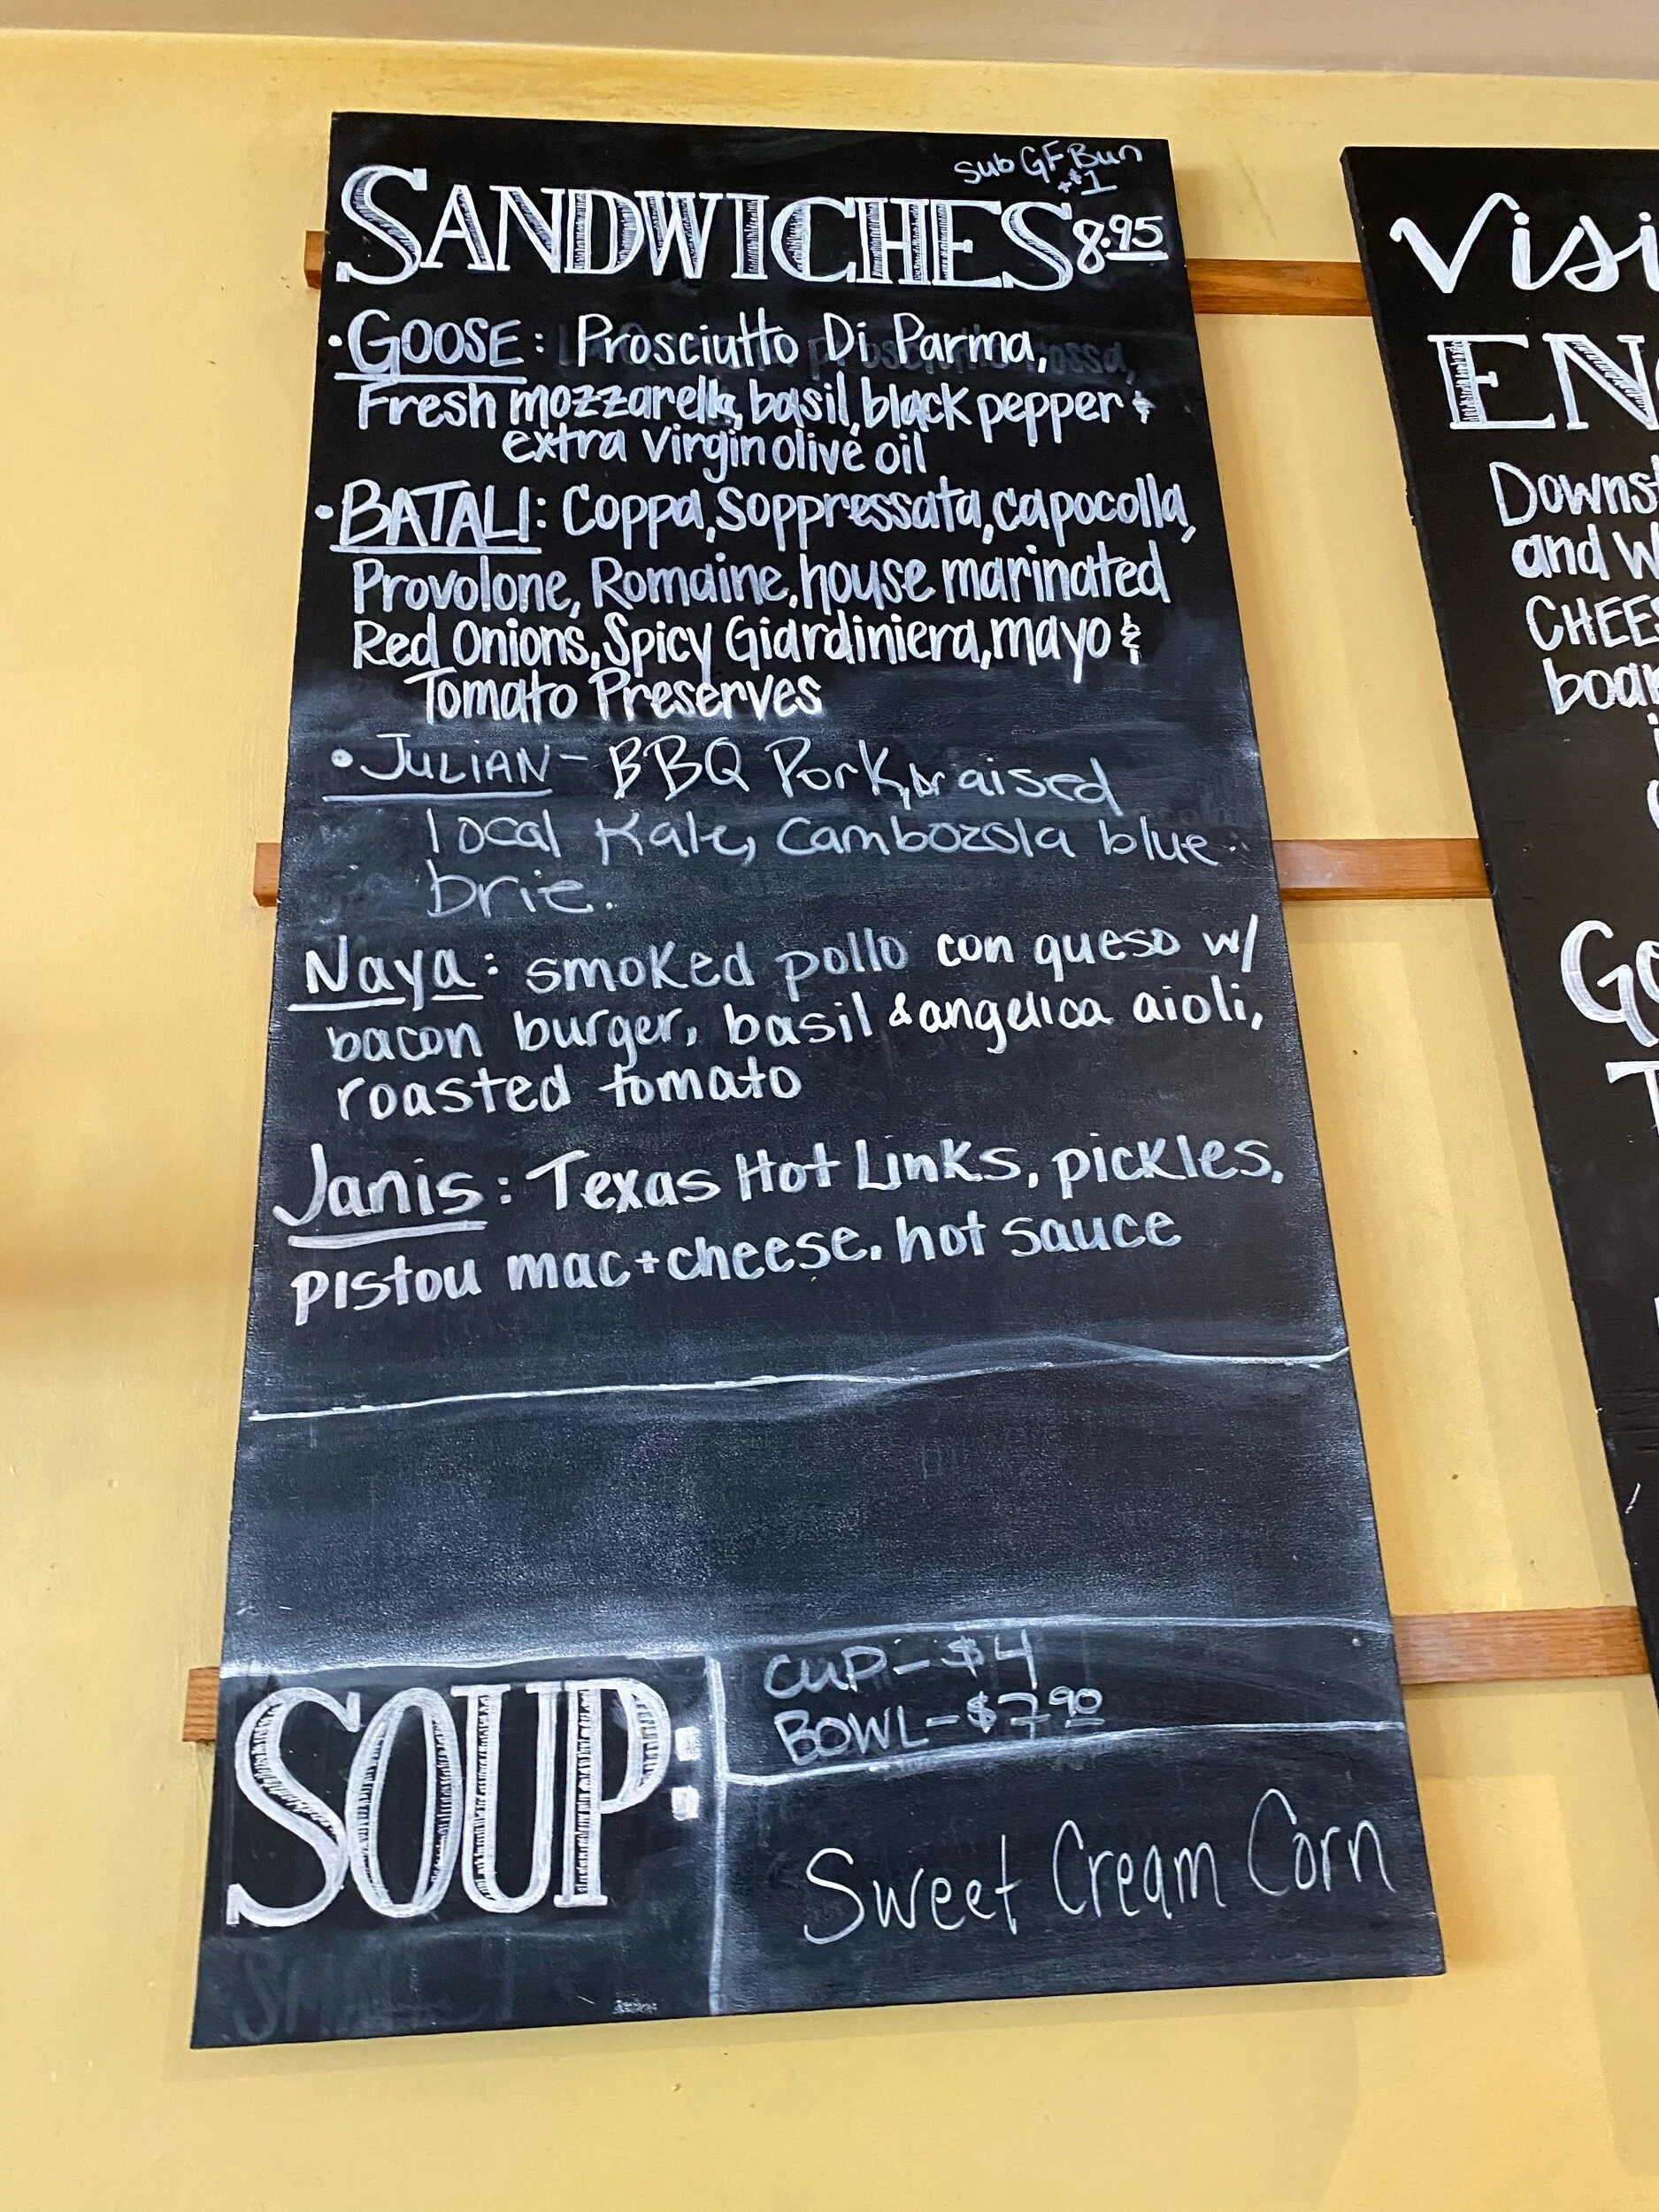 sub GF Bun
+$1
SANDWICHES 8.95
• GOOSE: Prosciutto Di Parma,
Fresh mozzarella, basil, black pepper &
extra virgin olive oil
• BATALI: Coppa, Soppressata, capocolla,
Provolone, Romaine, house marinated
Red Onions, Spicy Giardiniera, mayo &
Tomato Preserves
• JULIAN - BBQ Pork, braised
local Kale, Cambozola blue
brie.
Naya: smoked pollo con queso w/
bacon burger, basil & angelica aioli,
roasted tomato
Janis: Texas Hot Links, pickles,
pistou mac+cheese, hot sauce
SOUP:
CUP - $4
BOWL - $7.90
Sweet Cream Corn
Visi
EN
Downst
and w
CHEES
boar
Go
T